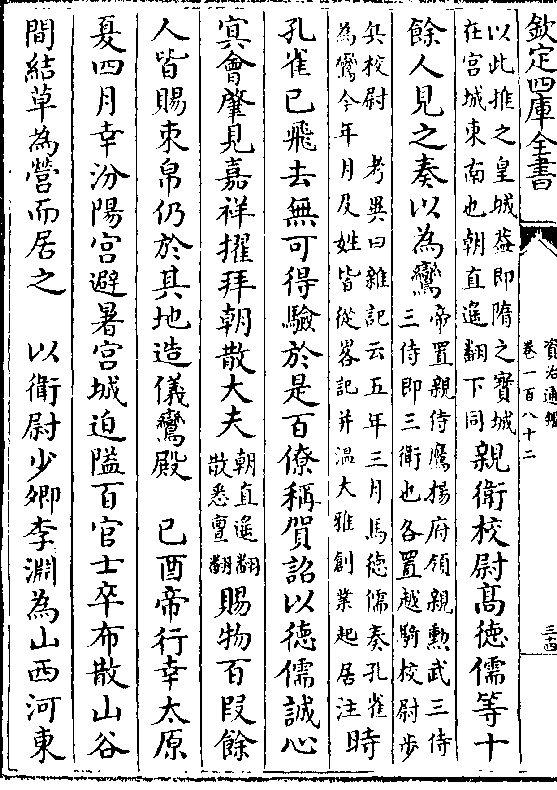 欽定四庫全書
資治通鑑
卷一百八十二
三十四
以此推之皇城蓋即隋之寶城
在宮城東南也朝直遙翻下同
親衛校尉高德儒等十
餘人見之奏以為鸞
帝置親侍鷹揚府領親勲武三侍
三侍即三衛也各置越騎校尉步
兵校尉 考異曰雜記云五年三月馬德儒奏孔雀
為鸞今年月及姓皆從畧記并溫大雅創業起居注
時
孔雀已飛去無可得驗於是百僚稱賀詔以德儒誠心
㝠會肇見嘉祥擢拜朝散大夫
朝直遙翻
散悉亶翻
賜物百段餘
人皆賜束帛仍於其地造儀鸞殿 己酉帝行幸太原
夏四月幸汾陽宮避暑宮城迫隘百官士卒布散山谷
間結草為營而居之 以衛尉少卿李淵為山西河東